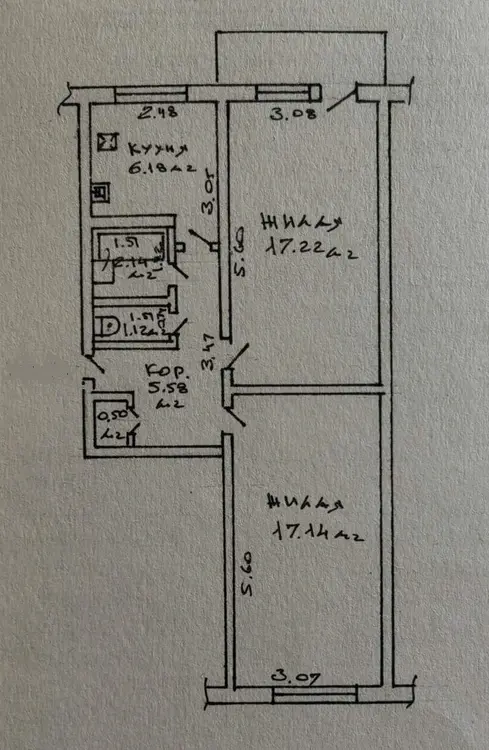 2.48
3.08
КУХНЯ
6.18 м2
3.05
ЖИЛАЯ
17.22 м2
5.60
1.51
2.14
м2
1.51
1.12 м2
3.47
КОР.
5.58
м2
0,50
м2
ЖИЛАЯ
17.14 м2
5.60
3.07